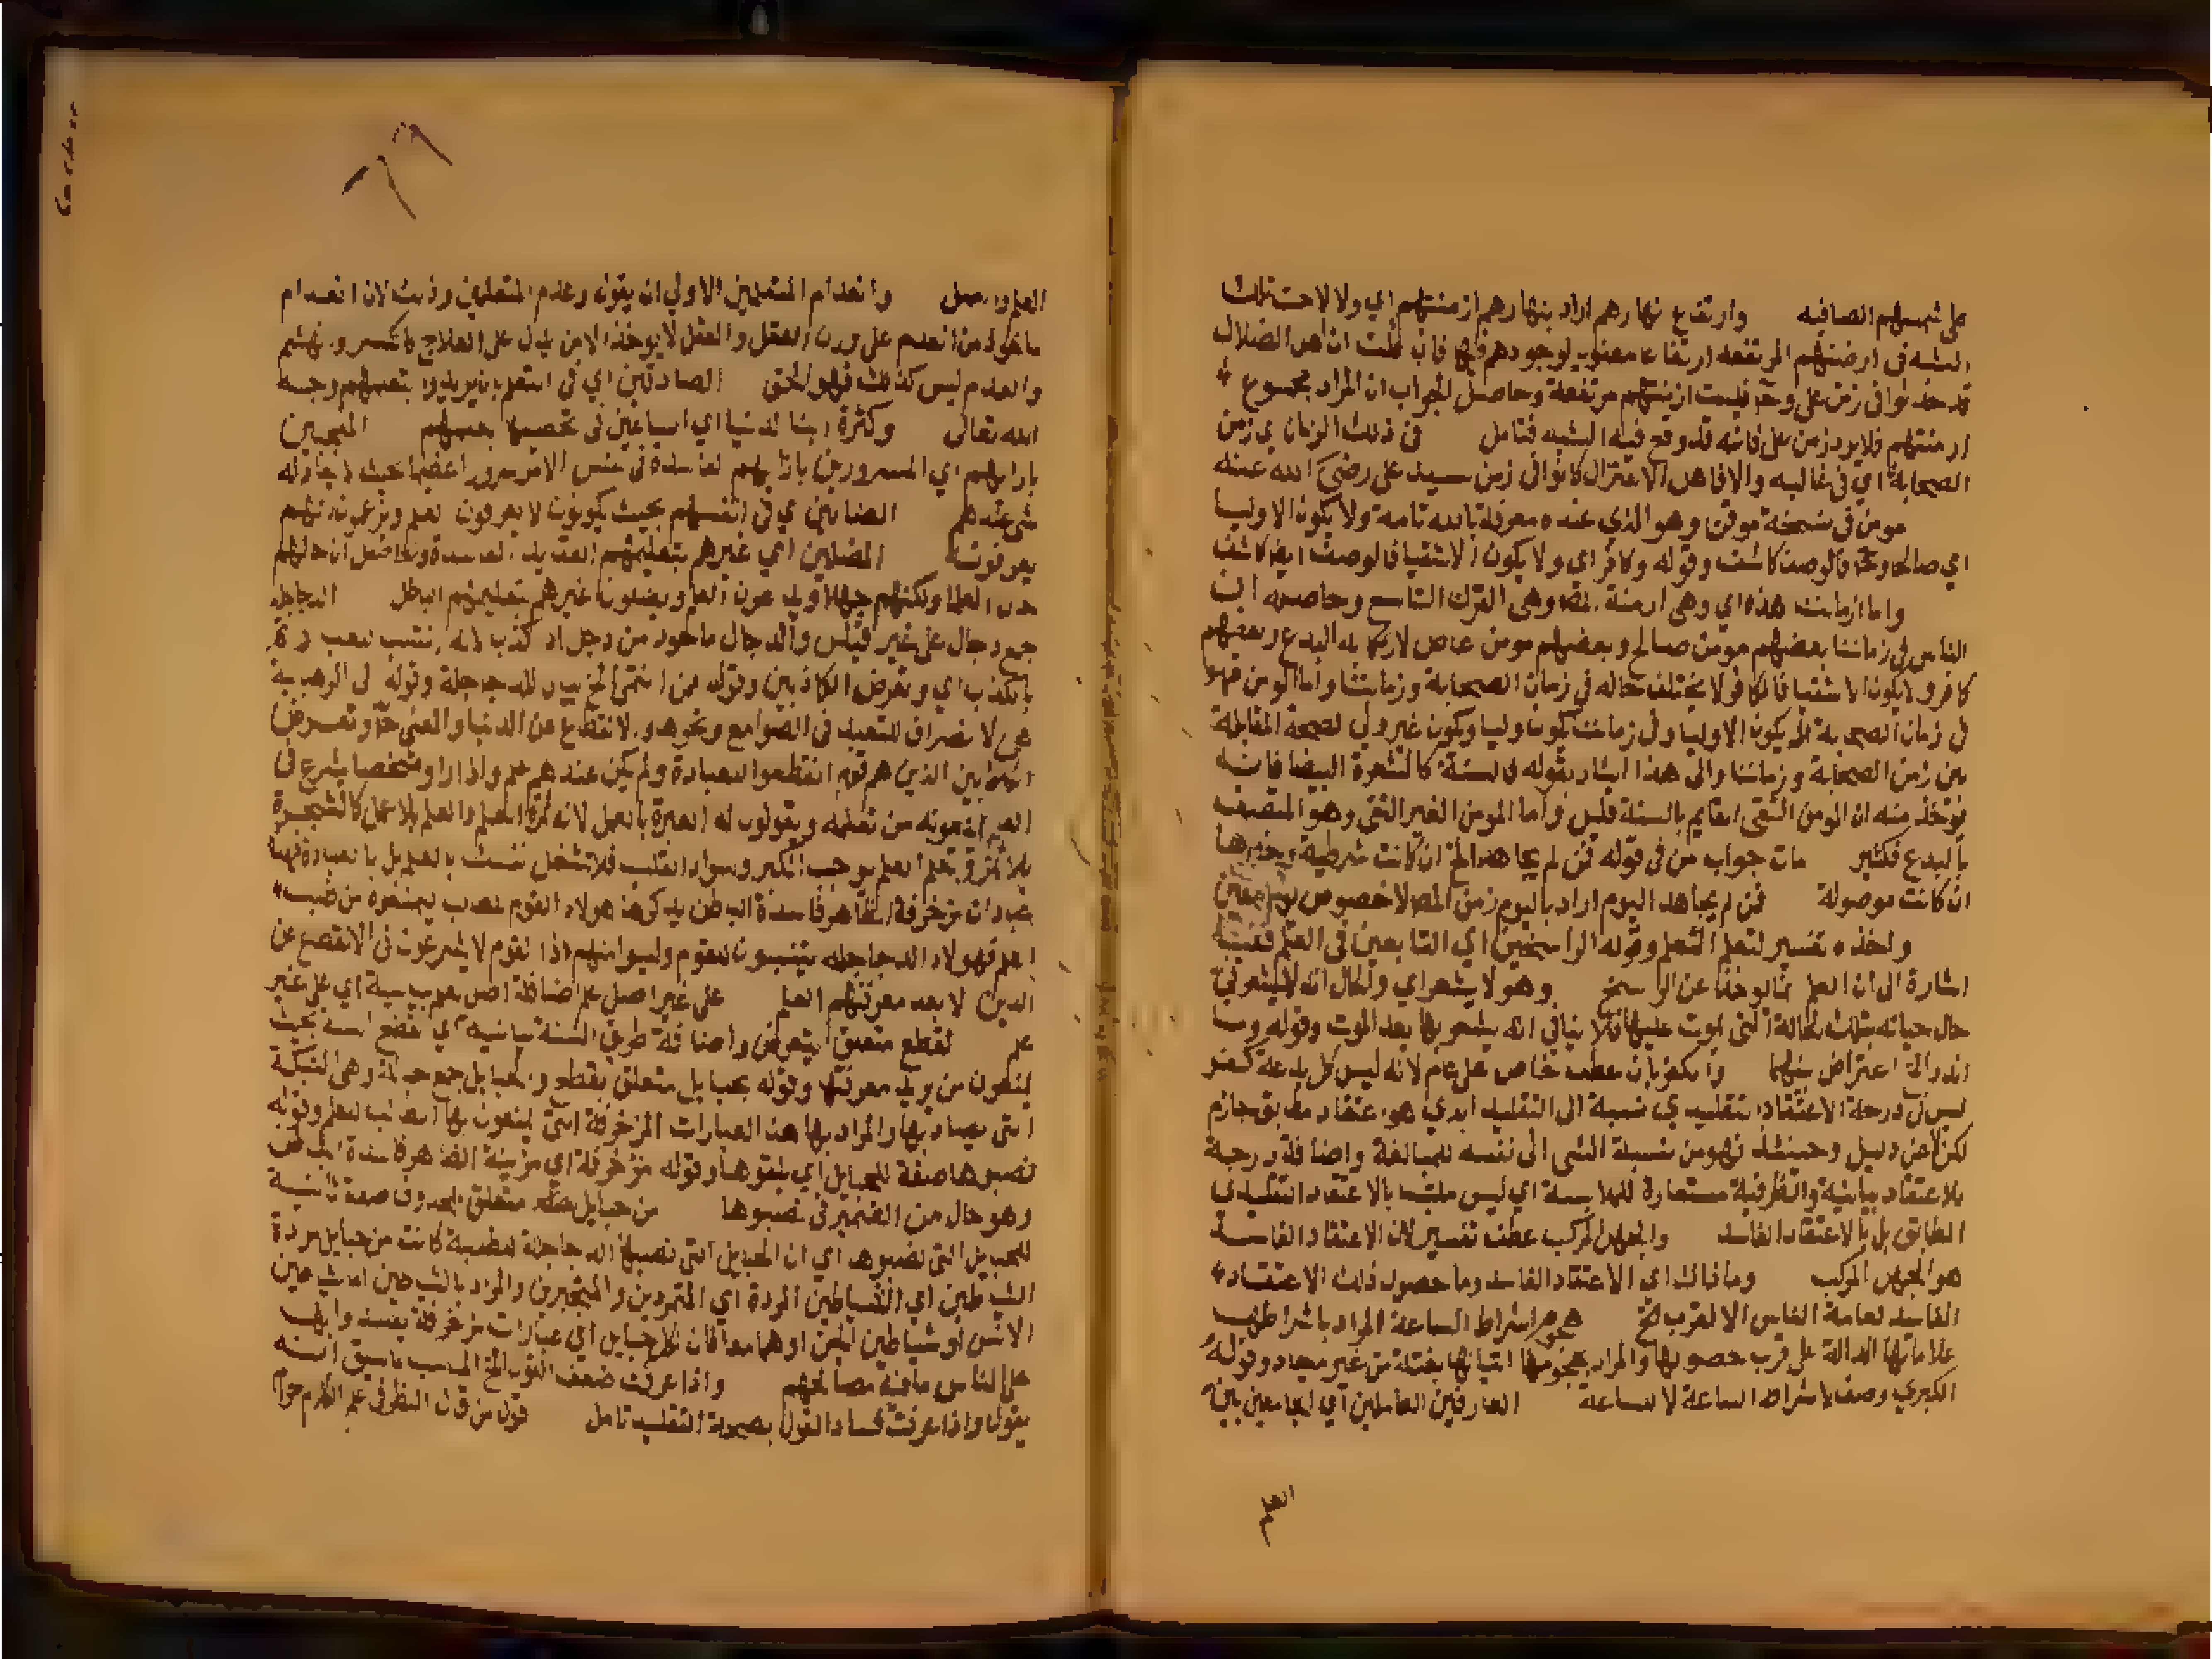 على شمسهم الصافيه وارتفاع نهارهم اراد بنهارهم ازمنتهم اي ولا لاحت تلك
الشبه في ازمنتهم المرتفعه ارتفاعا معنويا لوجودهم فيها فان قلت ان اهل الضلال
قد حدثوا في زمن علي وحـ فليست ازمنتهم مرتفعة وحاصل الجواب ان المراد بمجموع
ازمنتهم فلا يرد زمن علي فانه قد وقع فيه الشبه فتامل في ذلك الزمان اي زمن
الصحابة اي في غالبه والا فاهل الاعتزال كانوا في زمن سيد علي رضي الله عنه
مومن في نسخة موقن وهو الذي عنده معرفة بالله تامة ولا يكون الا وليا
اي صالحا وحـ فالوصف كاشف وقوله وكافر اي ولا يكون الا شقيا فالوصف ايضا كاشف
واما ازماننا هذه اي وهي ازمنة المصـ وهي القرن التاسع وحاصله ان
الناس في زماننا بعضهم مومن صالح وبعضهم مومن عاص لارتكابه البدع وبعضهم
كافر ولا يكون الا شقيا فالكافر لا يختلف حاله في زمان الصحابة وزماننا واما المومن فهو
في زمان الصحابة لم يكون الا وليا وفي زماننا يكون وليا ويكون غير ولي لصحة المقابلة
بين زمن الصحابة وزماننا والى هذا اشار بقوله فالسنة كالشعرة البيضا فانه
يوخذ منه ان المومن التقي القايم بالسنة قليل واما المومن الغير التقي وهو المتصف
بالبدع فكثير مات جواب من في قوله فمن لم يجاهد الخ ان كانت شرطية وخبرها
ان كانت موصولة فمن لم يجاهد اليوم اراد باليوم زمن المص لا خصوص يوم معين
ولخذه تفسير لتعلم العلم وقوله الراسخين اي الثابتين في العلم ففيه
اشارة الى ان العلم انما يوخذ عن الراسخ وهو لا يشعر اي والحال انه لا يشعر في
حال حياته بتلك الحالة التي يموت عليها فلا ينافي انه يشعر بها بعد الموت وقوله وما
اندر الخ اعتراض بينهما والكفر بان عطف خاص على عام لانه ليس كل بدعة كفر
ليس في درجة الاعتقاد التقليدي نسبة الى التقليد الذي هو اعتقاد مطابق جازم
لكن لا عن دليل وحينئذ فهو من نسبة الشي الى نفسه للمبالغة واضافة درجة
للاعتقاد بيانية والظرفية مستعارة للملابسة اي ليس ملتبسا بالاعتقاد التقليدي
المطابق بل بالاعتقاد الفاسد والجهل المركب عطف تفسير لان الاعتقاد الفاسد
هو الجهل المركب وما ذاك اي الاعتقاد الفاسد وما حصول ذلك الاعتقاد
الفاسد لعامة الناس الا لقرب الخ هجوم اشراط الساعة المراد باشراطها
علاماتها الدالة على قرب حصولها والمراد بهجومها اتيانها بغتة من غير ميعاد وقوله
الكبري وصف لاشراط الساعة لا للساعة العارفين العاملين اي الجامعين بين
العلم
العلم والعمل وانعدام المتعلمين الاولى ان يقول وعدم المتعلمين وذلك لان انعدام
ماخوذ من انعدم على وزن انفعل وانفعل لا يوخذ الا من يدل على العلاج كانكسر وانهشم
والعدم ليس كذلك فهو لحن الصادقين اي في التعلم بان يريدوا بتعلمهم وجه
الله تعالى وكثرة ابنا الدنيا اي الساعين في تحصيلها بعلمهم المعجبين
بارايهم اي المسرورين بارايهم الفاسدة في نفس الامر سرورا عظيما حيث لا يعادله
شي عندهم الضالين اي في انفسهم بحيث يكونون لا يعرفون العلم ويزعمون انهم
يعرفونه المضلين اي غيرهم بتعليمهم العقايد الفاسدة والحاصل ان حالهم
حال العلما ولكنهم جهلا ويدعون العلم ويضلون غيرهم بتعليمهم الباطل الدجاجلة
جمع دجال على غير قياس والدجال ماخوذ من دجل اذا كذب لانه
بالكذب اي وتعرض الكاذبين وقوله ممن انتمى الخ بيان للدجاجلة وقوله الى الرهبانية
هي الانصراف للتعبد في الصوامع ونحوها والانقطاع عن الدنيا والمعنى حـ وتعرض
الكاذبين الذين هم قوم انقطعوا للعبادة ولم يكن عندهم علم واذا راوا شخصا يشرع في
العلم يمنعونه من تعلمه ويقولون له العبرة بالعمل لانه ثمرة العلم والعلم بلا عمل كالشجرة
بلا ثمر وتعلم العلم يوجب الكبر وسواد القلب فلا تشغل نفسك بالعلم بل بالعبادة
بعبارات مزخرفة الظاهر فاسدة الباطن يذكرها هولاء القوم للطالب ليمنعوه من طلب
العلم فهولاء الدجاجلة ينتسبون للقوم وليسوا منهم اذ القوم لا يشرعون في الانقطاع عن
الدين الا بعد معرفتهم العلم على غير اصل علم اضافة اصل لعلم بيانية اي على غير
علم لقطع متعلق بتعرض واضافة طريق السنة بيانية اي لقطع السنة بحيث
يمنعون من يريد معرفتها وقوله بحبايل متعلق بقطع والحبايل جمع حبالة وهي الشبكة
التي يصاد بها والمراد بها هنا العبارات المزخرفة التي يمنعون بها الطالب للعلم وقوله
نصبوها صفة للحبايل اي يلقوها وقوله مزخرفة اي مزينة الظاهر فاسدة الباطن
وهو حال من الضمير في نصبوها من حبايل متعلق بمحذوف صفة ثانية
للحبايل التي نصبوها اي ان الحبايل التي نصبها الدجاجلة للطلبة كانت من حبايل مردة
الشياطين اي الشياطين المردة اي المتمردين والمتجبرين والمراد بالشياطين اما شياطين
الانس او شياطين الجن او هما معا فان لكل حبايل اي عبارات مزخرفة يفسدوا بها
على الناس ما فيه مصالحهم واذا عرفت ضعف القول الخ المناسب لما سبق انه
يقول واذا عرفت فساد القول بصحة التقليد تامل قول من قال النظر في علم الكلام حرام